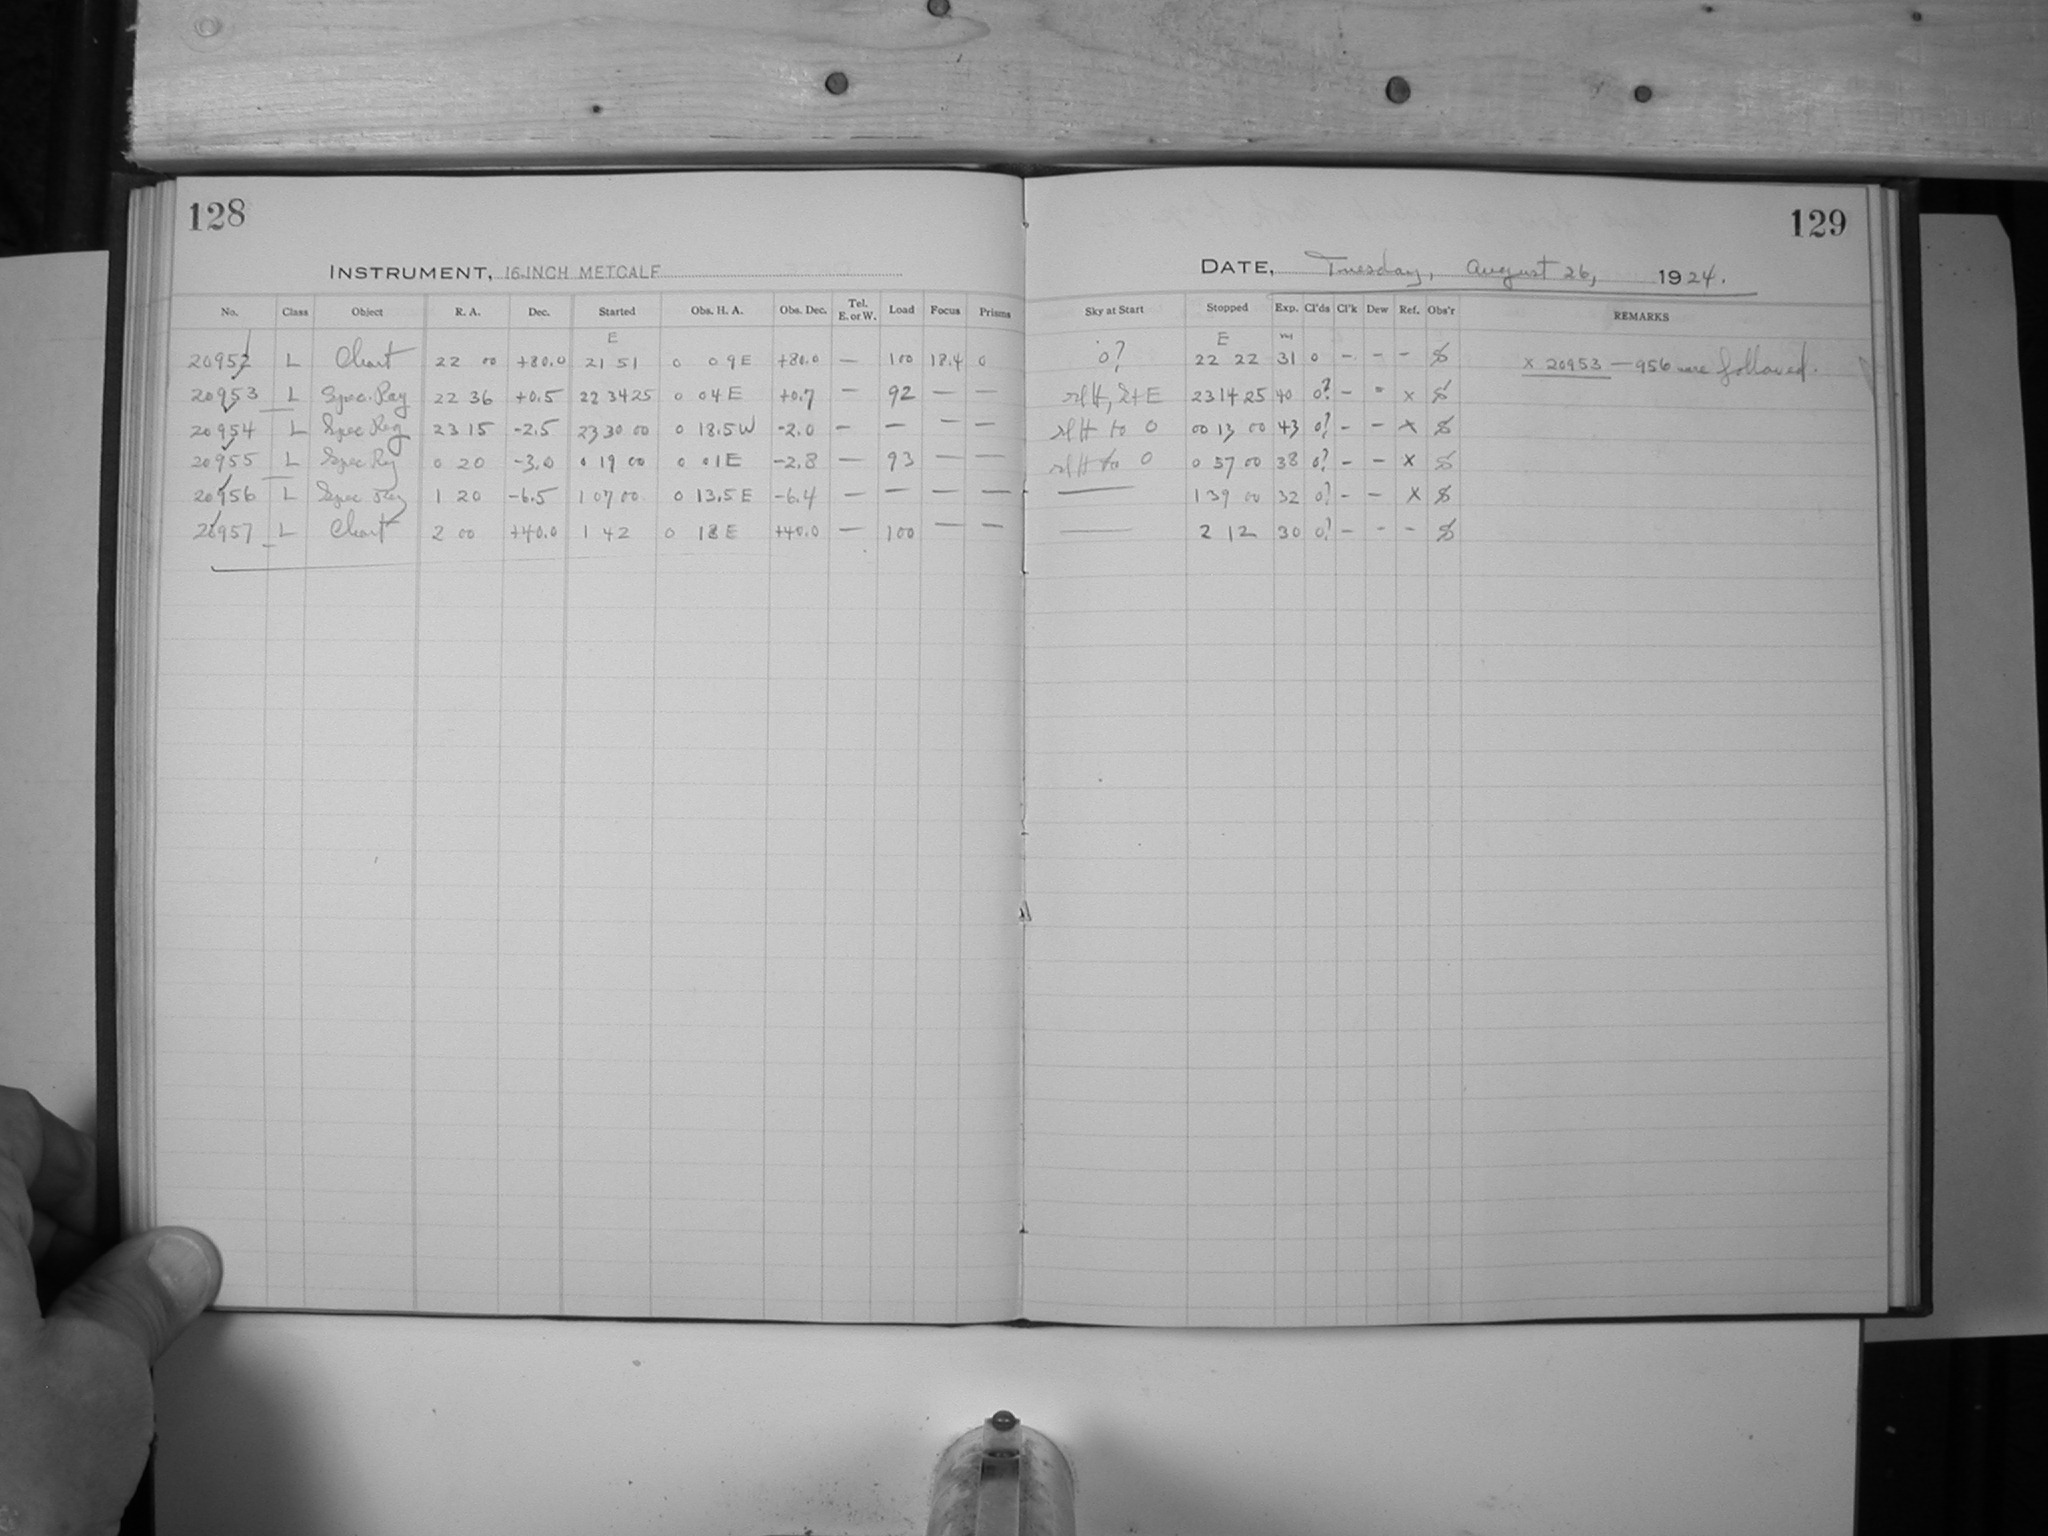 128
INSTRUMENT, 16-INCH METCALF
No. Class Object R. A. Dec. Started Obs. H. A. Obs. Dec. Tel. E. or W. Load Focus Prisms
E
20952 L Chart 22 00 +80.0 21 51 0 09E +80.0 — 100 18.4 0
20953 L Spec. Reg 22 36 +0.5 22 34 25 0 04E +0.7 — 92 — —
20954 L Spec Reg 23 15 -2.5 23 30 00 0 18.5W -2.0 — — — —
20955 L Spec Reg 0 20 -3.0 0 19 00 0 01E -2.8 — 93 — —
20956 L Spec Reg 1 20 -6.5 1 07 00 0 13.5E -6.4 — — — —
20957 L Chart 2 00 +40.0 1 42 0 18E +40.0 — 100 — —
129
DATE, Tuesday, August 26, 1924.
Sky at Start Stopped Exp. Cl'ds Cl'k Dew Ref. Obs'r REMARKS
E m
0? 22 22 31 0 - - -
x 20953 — 956 are followed.
23 14 25 40 0? - - x
to 0 00 13 00 43 0? - - x
to 0 0 57 00 38 0? - - x
— 1 39 00 32 0? - - x
— 2 12 30 0? - - -